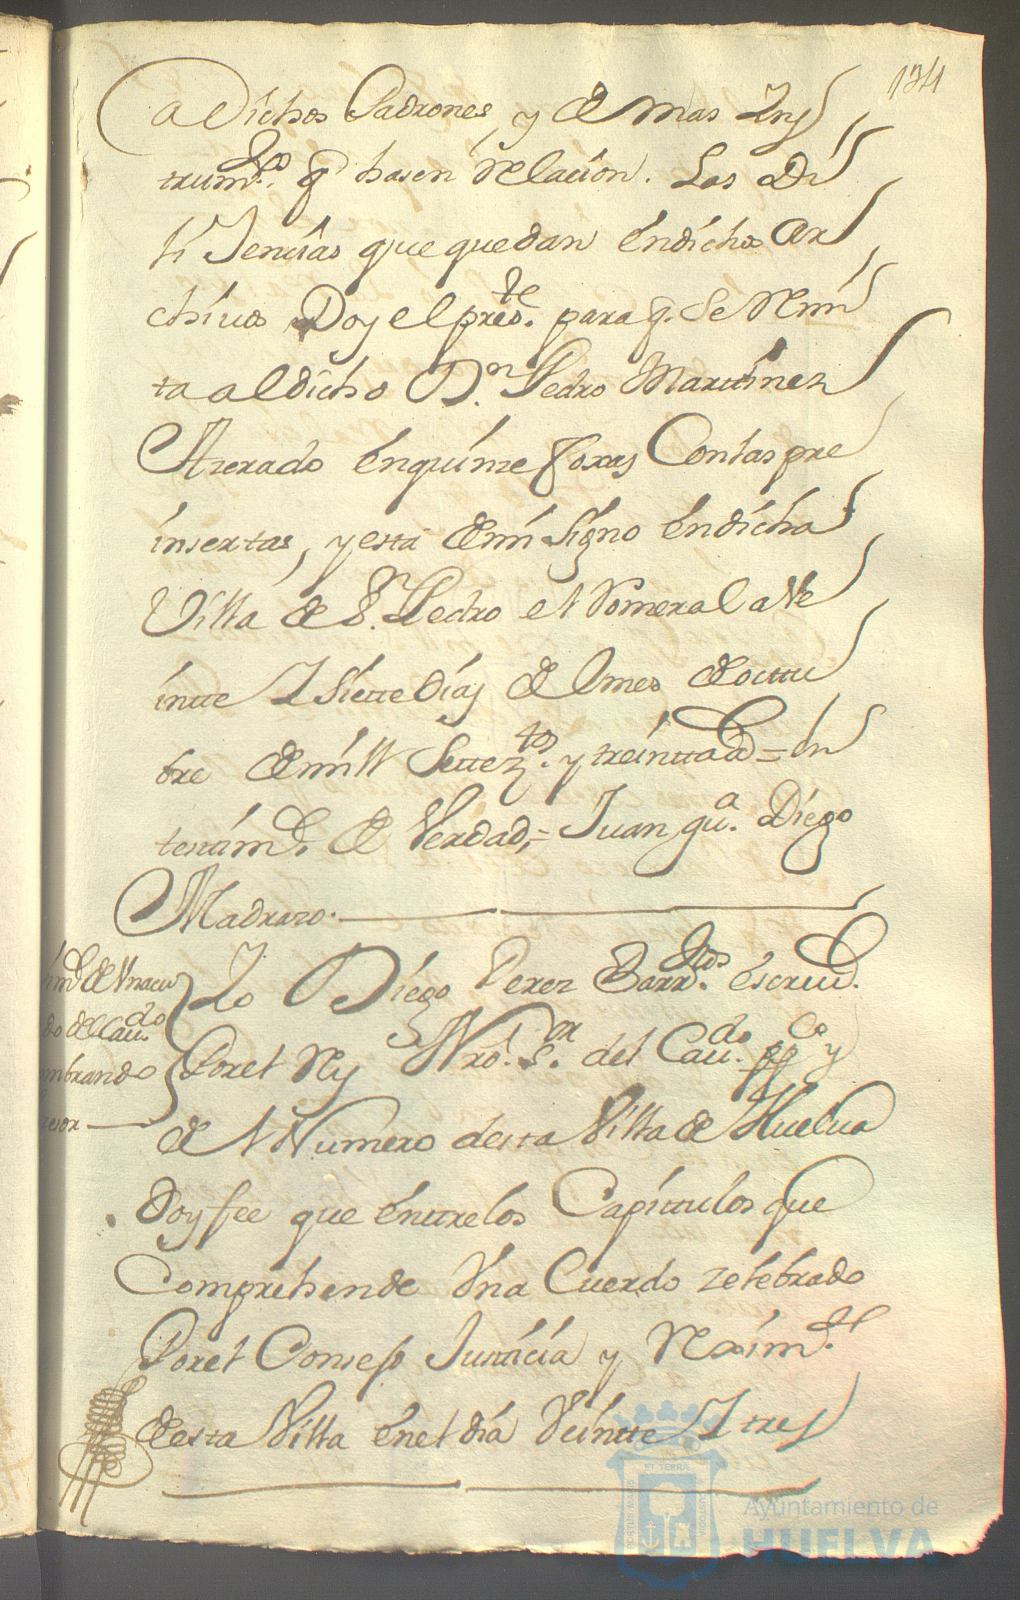 134
a Dichos Padrones, y demas Yns
trumtos. q hasen Relacion. Las Di
li Jencias que quedan en dicho Ar
chivo Doy el preste. para q. Se Remi
ta al dicho Dn. Pedro Martinez
Azerado en quinze foxas Con las pre
insertas, y esta de mi Signo en dicha
Villa de Sn. Pedro el Romeral a Ve
intte Y Siette Dias del mes de octtu
bre de mill Setteztos. y treintta ad = En
testimo. de Verdad, = Juan ga. Diego
Madrazo.
de Un acu
do del Cavdo.
mbrando
Yo Diego Perez Barrtos. escrivo.
Por el Rey Nro. Sr. del Cavdo. ppco y
del Numero desta Villa de Huelva
Doy fee que enttre los Capittulos que
Comprehende Un a Cuerdo zelebrado
Por el Consejo Justicia y Reximto.
desta Villa en el dia Veintte Y tres
ET TERRAE
Ayuntamiento de
HUELVA